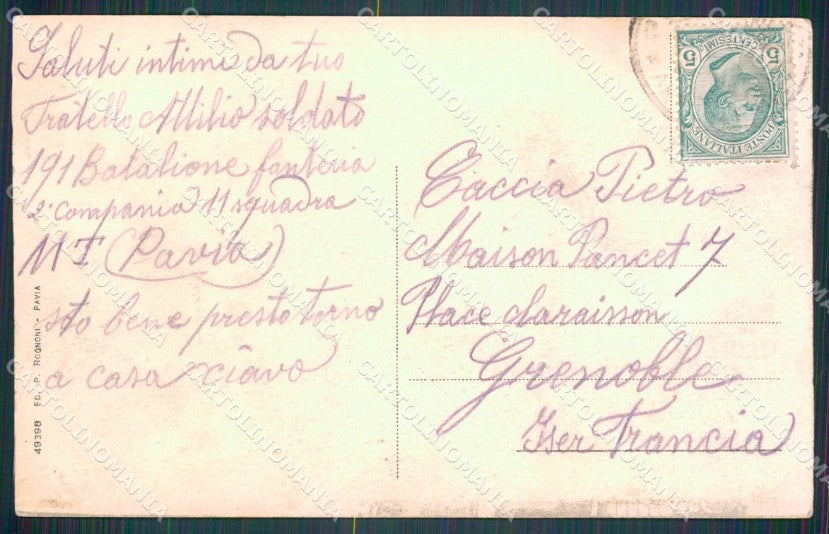 Saluti intimi da tuo
Fratello Attilio soldato
191 Batalione fanteria
2ª compania 11 squadra
MT (Pavia)
sto bene presto torno
a casa xiavo
49398 ED. P. ROGNONI - PAVIA
Caccia Pietro
Maison Pancet 7
Place claraisson
Grenoble
Iser Francia
5 CENTESIMI 5
POSTE ITALIANE
CARTOLINOMANIA